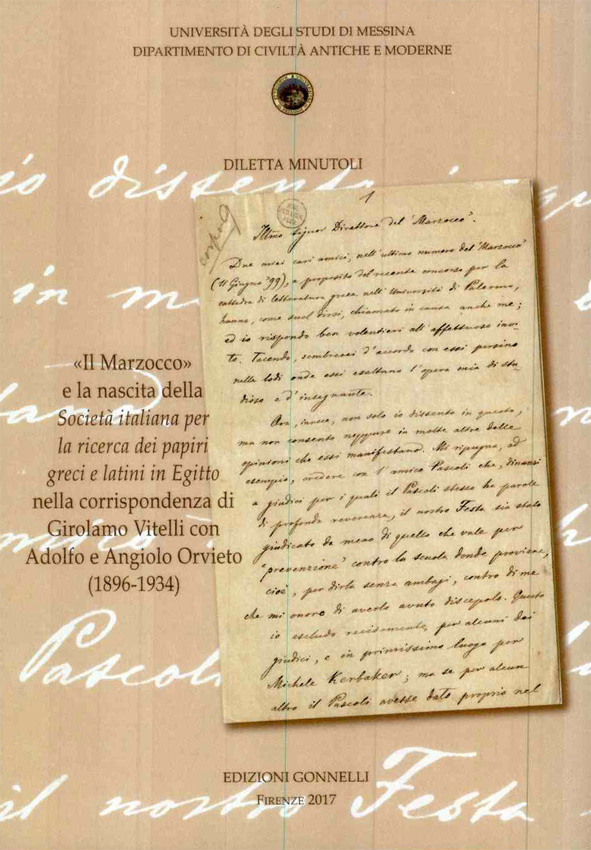 UNIVERSITÀ DEGLI STUDI DI MESSINA
DIPARTIMENTO DI CIVILTÀ ANTICHE E MODERNE
DILETTA MINUTOLI
«Il Marzocco»
e la nascita della
Società italiana per
la ricerca dei papiri
greci e latini in Egitto
nella corrispondenza di
Girolamo Vitelli con
Adolfo e Angiolo Orvieto
(1896-1934)
1
Illmo Signor Direttore del "Marzocco".
Due miei cari amici, nell'ultimo numero del "Marzocco"
(11 Giugno '99), a proposito del recente concorso per la
cattedra di letteratura greca nell'Università di Palermo,
hanno, come suol dirsi, chiamato in causa anche me;
ed io rispondo ben volentieri all'affettuoso invi-
to. Tacendo, sembrerei d'accordo con essi persino
nelle lodi onde essi esaltano l'opera mia di stu-
dioso e d'insegnante.
Ora, invece, non solo io dissento in questo,
ma non consento neppure in molte altre delle
opinioni che essi manifestano. Mi ripugna, ad
esempio, credere con l'amico Pascoli che, dinanzi
a giudici per i quali il Pascoli stesso ha parole
di profonda reverenza, il nostro Festa sia stato
giudicato da meno di quello che vale per
"prevenzione" contro la scuola donde proviene,
cioè, per dirla senza ambagi, contro di me
che mi onoro di averlo avuto discepolo. Questo
io escludo recisamente per alcuni dei
giudici, e in primissimo luogo per
Michele Kerbaker; ma se per alcun
altro il Pascoli avesse dato proprio nel
io dissento in qu
in m
Pascoli
il nostro Festa
EDIZIONI GONNELLI
FIRENZE 2017